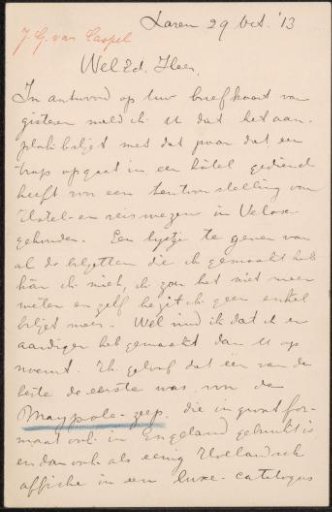 Laren 29 Oct. '13
J. G. van Caspel
WelEd. Heer,
In antwoord op Uw briefkaart van
gisteren meld ik U dat het aan-
plakbiljet met dat paar dat een
trap opgaat in een hôtel gediend
heeft voor een tentoonstelling van
Hotel- en reiswezen in
gehouden. Een lijstje te geven van
al de biljetten die ik gemaakt heb
kan ik niet, ik zou het niet meer
weten en zelf bezit ik geen enkel
biljet meer. Wel vind ik dat ik er
aardiger heb gemaakt dan U op
noemt. Ik geloof dat één van de
beste de eerste was, voor de
Maypole-zeep, die in groot for-
maat ook in Engeland gedrukt is
en dan ook als eenig Hollandsch
affiche in een luxe-catalogus